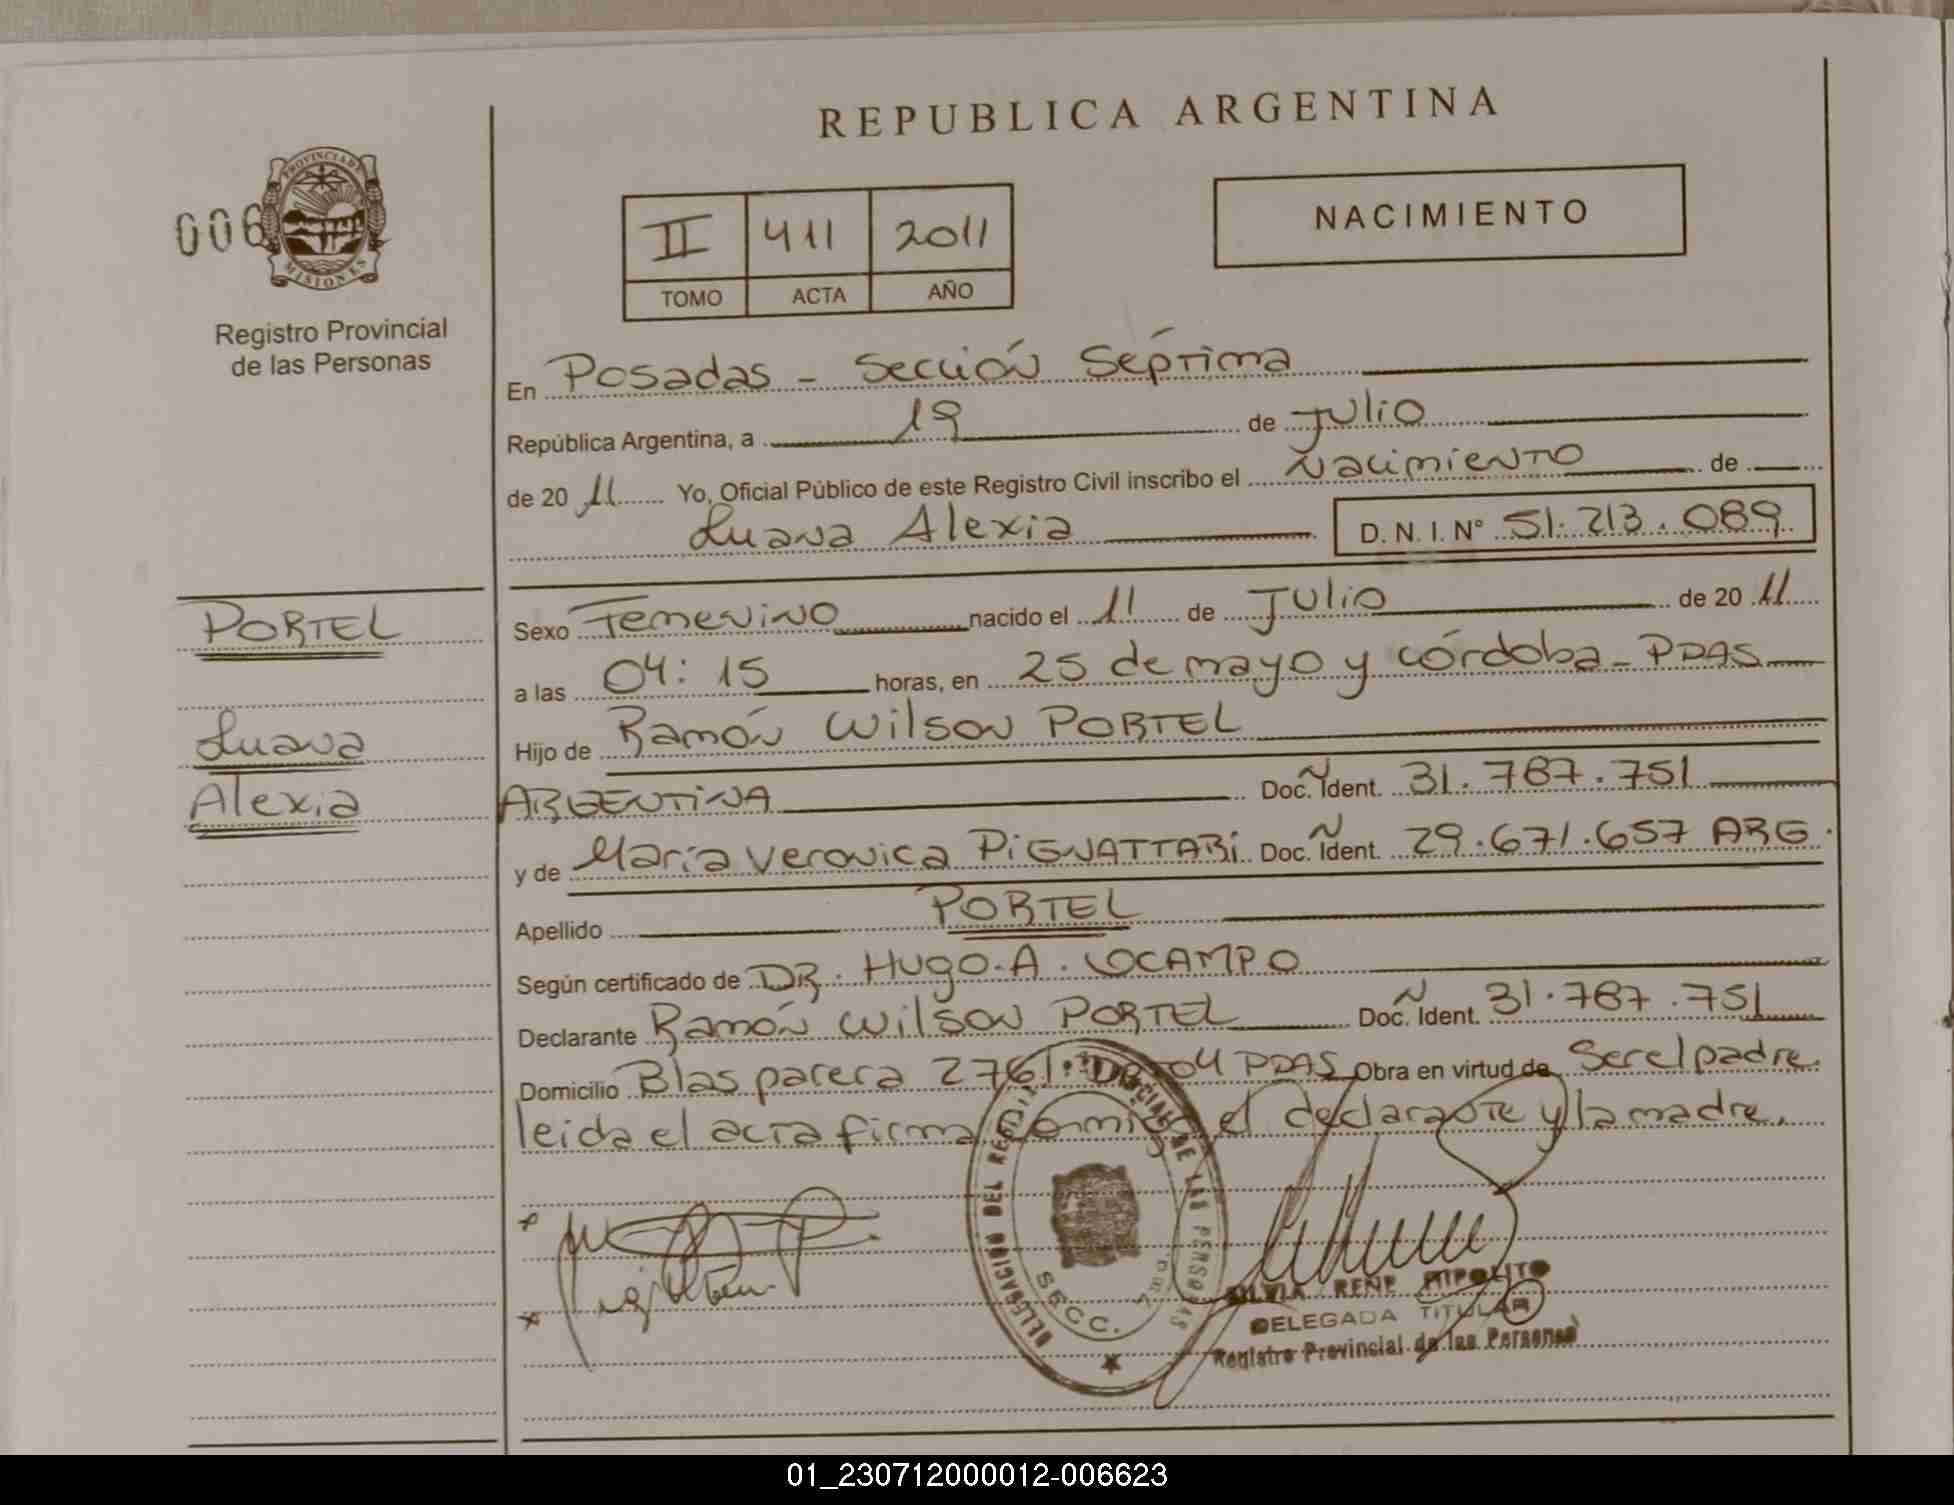 REPUBLICA ARGENTINA
006
PROVINCIA DE
MISIONES
Registro Provincial
de las Personas
II 411 2011
TOMO ACTA AÑO
NACIMIENTO
En Posadas - Sección Séptima
República Argentina, a 19 de Julio
de 20 11 Yo, Oficial Público de este Registro Civil inscribo el Nacimiento de
Luana Alexia D. N. I. N° 51.213.089
PORTEL
Luana
Alexia
Sexo Femenino nacido el 11 de Julio de 20 11
a las 04:15 horas, en 25 de mayo y córdoba - PDAS
Hijo de Ramón Wilson PORTEL
ARGENTINA Doc. Ident. 31.787.751
y de María Veronica PIGNATTARI Doc. Ident. 29.671.657 ARG.
Apellido PORTEL
Según certificado de DR. HUGO.A. OCAMPO
Declarante Ramón Wilson PORTEL Doc. Ident. 31.787.751
Domicilio Blas parera 2761 PDAS Obra en virtud de Ser el padre.
leida el acta firma conmigo el declarante y la madre.
DELEGACION DEL REGISTRO PROVINCIAL DE LAS PERSONAS
SECC. 7ma.
SILVIA RENE HIPOLITO
DELEGADA TITULAR
Registro Provincial de las Personas
01_230712000012-006623